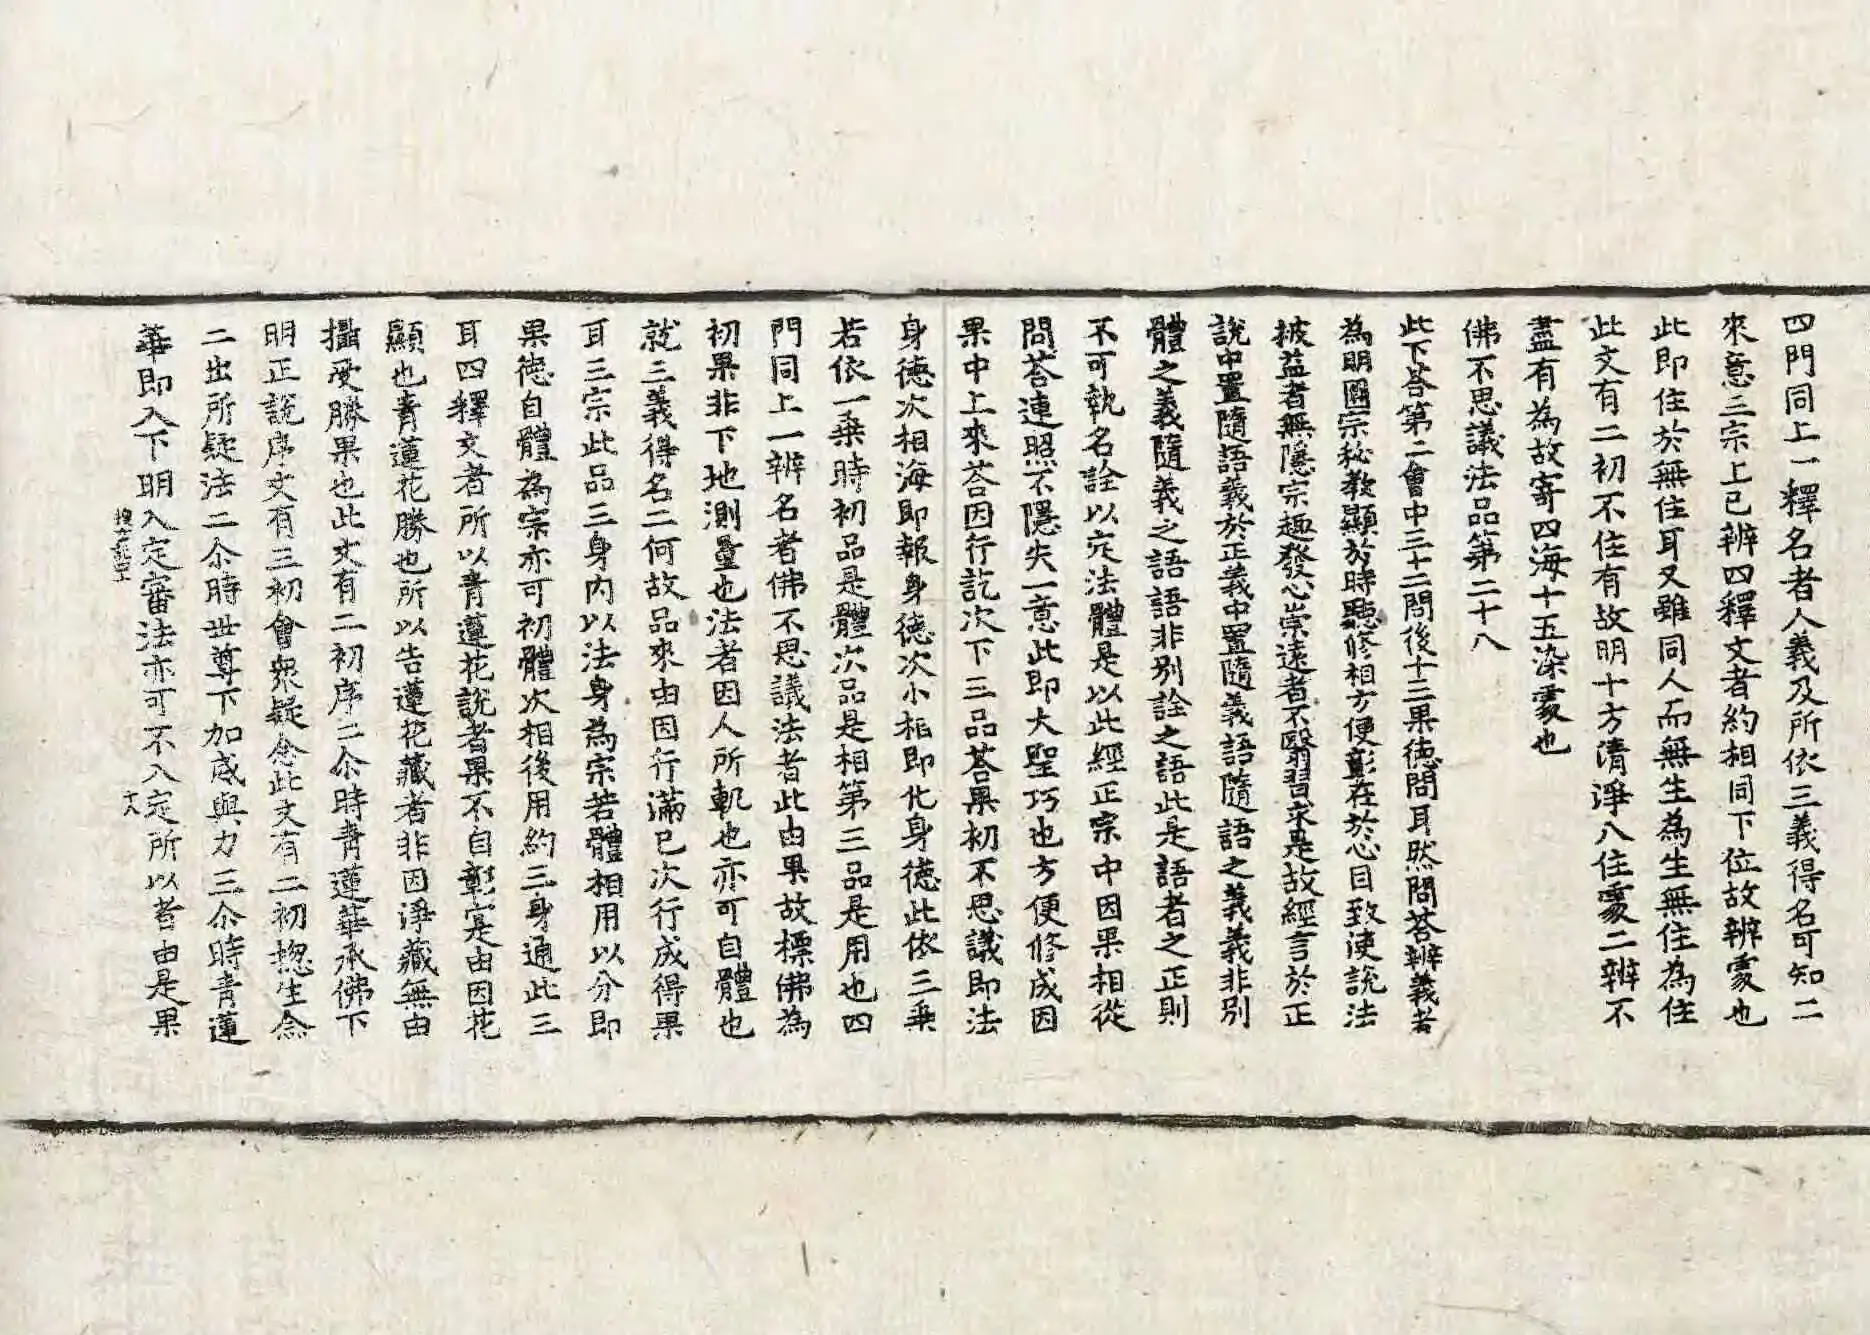 四門同上一釋名者人義及所依三義得名可知二
來意三宗上已辨四釋文者約相同下位故辨處也
此即住於無住耳又雖同人而無生為生無住為住
此文有二初不住有故明十方清淨八住處二辨不
盡有為故寄四海十五染處也
佛不思議法品第二十八
此下荅第二會中三十二問後十三果德問耳然問荅辨義者
為明圓宗秘教顯於時聽修相方便彰在於心目致使說法
披益者無隱宗趣發心崇遠者不翳習求是故經言於正
說中置隨語義於正義中置隨義語隨語之義義非別
體之義隨義之語語非別詮之語此是語者之正則
不可執名詮以定法體是以此經正宗中因果相從
問荅連照不隱失一意此即大聖巧也方便修成因
果中上來荅因行訖次下三品荅果初不思議即法
身德次相海即報身德次小相即化身德此依三乗
若依一乗時初品是體次品是相第三品是用也四
門同上一辨名者佛不思議法者此由果故標佛為
初果非下地測量也法者因人所軌也亦可自體也
就三義得名二何故品來由因行滿已次行成得果
耳三宗此品三身内以法身為宗若體相用以分即
果德自體為宗亦可初體次相後用約三身通此三
耳四釋文者所以青蓮花說者果不自彰寔由因花
顯也青蓮花勝也所以告蓮花藏者非因淨藏無由
攝受勝果也此文有二初序二尒時青蓮華承佛下
明正說序文有三初會衆疑念此文有二初惣生念
二出所疑法二尒時世尊下加威與力三尒時青蓮
華即入下明入定審法亦可不入定所以者由是果
十八